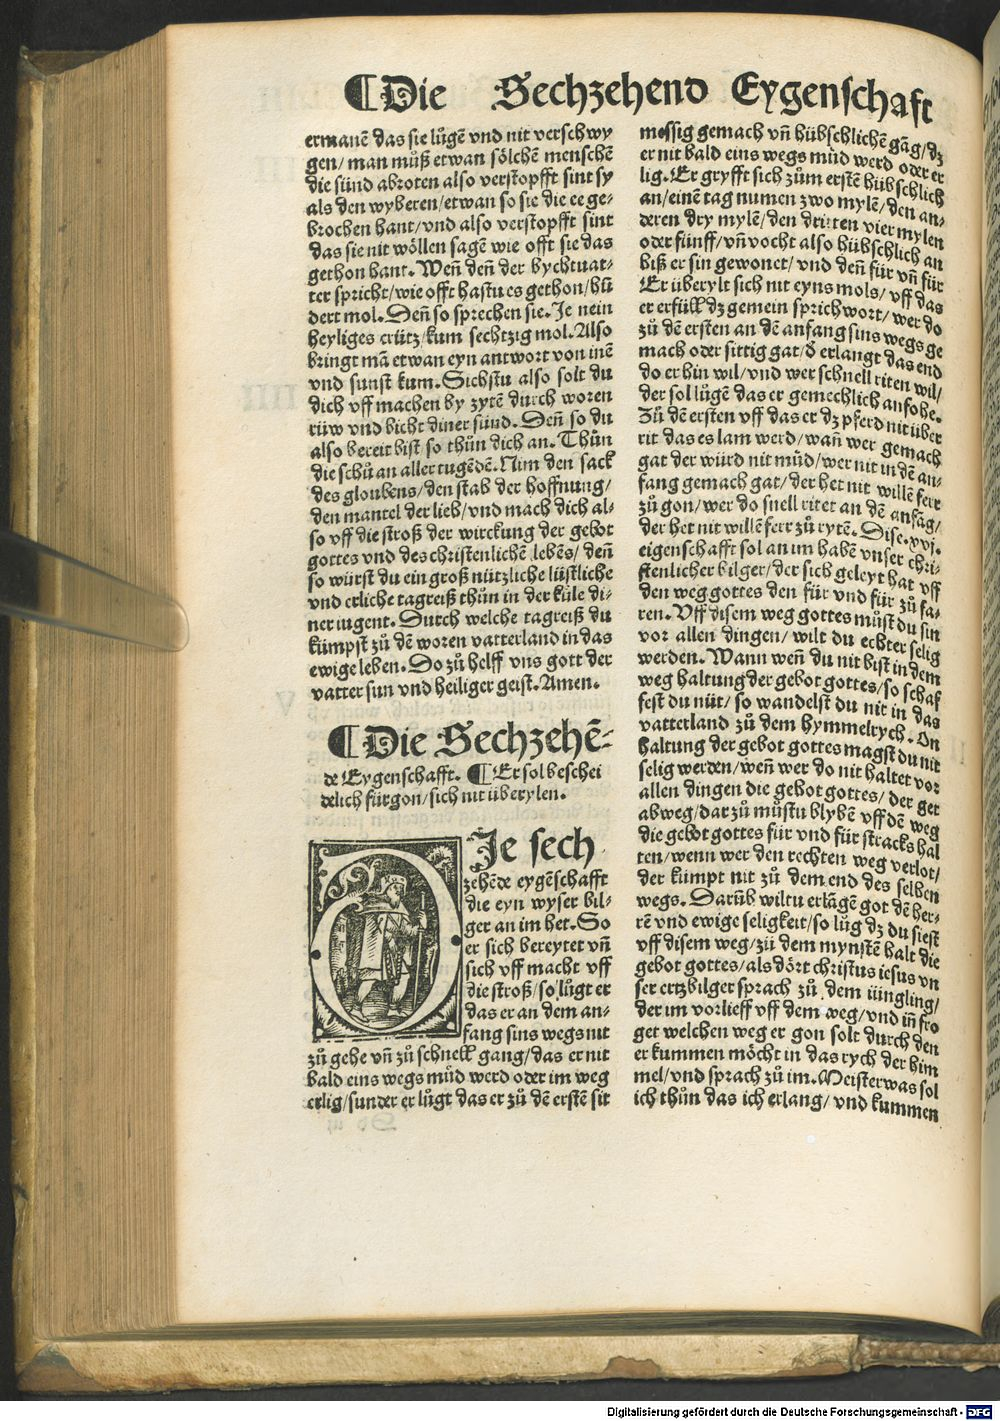 ¶Die Sechzehend Eygenschaft
ermanē das sie lůgē vnd nit verschwy
gen/ man můß etwan sölchē menschē
die sünd abroten also verstopfft sint sy
als den wyberen/etwan so sie die ee ge-
brochen hant/vnd also verstopfft sint
das sie nit wöllen sagē wie offt sie das
gethon hant. Weñ deñ der bychtuat-
ter spricht/wie offt hastu es gethon/hū
dert mol. Deñ so sprechen sie. Je nein
heyliges crütz/kum sechtzig mol. Also
bringt mā etwan eyn antwort von inē
vnd sunst kum. Sichstu also solt du
dich vff machen by zytē durch woren
rüw vnd bicht diner sünd. Deñ so du
also bereit bist so thůn dich an. Thůn
die schů an aller tugēdē. Nim den sack
des gloubens/den stab der hoffnung/
den mantel der lieb/vnd mach dich al-
so vff die stroß der wirckung der gebot
gottes vnd des christenlichē lebēs/ deñ
so würst du ein groß nützliche lüstliche
vnd erliche tagreiß thůn in der küle di-
ner iugent. Durch welche tagreiß du
kümpst zů dē woren vatterland in das
ewige leben. Do zů helff vns gott der
vatter sun vnd heiliger geist. Amen.
¶Die Sechzehē-
de Eygenschafft. ¶Er sol beschei
delich fürgon/sich nit überylen.
DJe sech
zehēde eygēschafft
die eyn wyser bil-
ger an im het. So
er sich bereytet vñ
sich vff macht vff
die stroß/so lůgt er
das er an dem an-
fang sins wegs nit
zů gehe vñ zů schnell gang/das er nit
bald eins wegs můd werd oder im weg
erlig/sunder er lůgt das er zů dē erstē sit
messig gemach vñ hübschlichē gāg/dz
er nit bald eins wegs müd werd oder er
lig. Er gryfft sich zům erstē hübschlich
an/einē tag numen zwo mylē/den an-
deren dry mylē/den dritten vier mylen
oder fünff/vñ vocht also hübschlich an
biß er sin gewonet/ vnd deñ für vñ für
Er überylt sich nit eyns mols/ vff das
er erfüll dz gemein sprichwort/ wer do
zů dē ersten an dē anfang sins wegs ge
mach oder sittig gat/d̄ erlangt das end
do er hin wil/vnd wer schnell riten wil/
der sol lůgen das er gemechlich anfohe.
Zů dē ersten vff das er dz pferd nit über
rit das es lam werd/wañ wer gemach
gat der würd nit můd/wer nit in dē an-
fang gemach gat/der het nit willē ferr
zů gon/wer do snell ritet an dē anfāg/
der het nit willē ferr zů rytē. Dise.xvj.
eigenschafft sol an im habē vnser chri-
stenlicher bilger/der sich geleyt hat vff
den weg gottes den für vnd für zů fa-
ren. Vff disem weg gottes můst du sin
vor allen dingen/ wilt du echter selig
werden. Wann weñ du nit bist in dem
weg haltung der gebot gottes/so schaf
fest du nüt/ so wandelst du nit in das
vatterland zů dem hymmelrych. On
haltung der gebot gottes magst du nit
selig werden/weñ wer do nit haltet vor
allen dingen die gebot gottes/ der get
abweg/dar zů můstu blybē vff dē weg
die gebot gottes für vnd für stracks hal
ten/wenn wer den rechten weg verlot/
der kümpt nit zů dem end des selben
wegs. Darūb wiltu erlāgē got dē her-
rē vnd ewige seligkeit/so lůg dz du siest
vff disem weg/zů dem mynstē halt die
gebot gottes/als dört christus iesus vn
ser ertzbilger sprach zů dem iüngling/
der im vorlieff vff dem weg/vnd iñ fro
get welchen weg er gon solt durch den
er kummen möcht in das rych der him
mel/vnd sprach zů im. Meister was sol
ich thůn das ich erlang/ vnd kummen
Digitalisierung gefördert durch die Deutsche Forschungsgemeinschaft - DFG